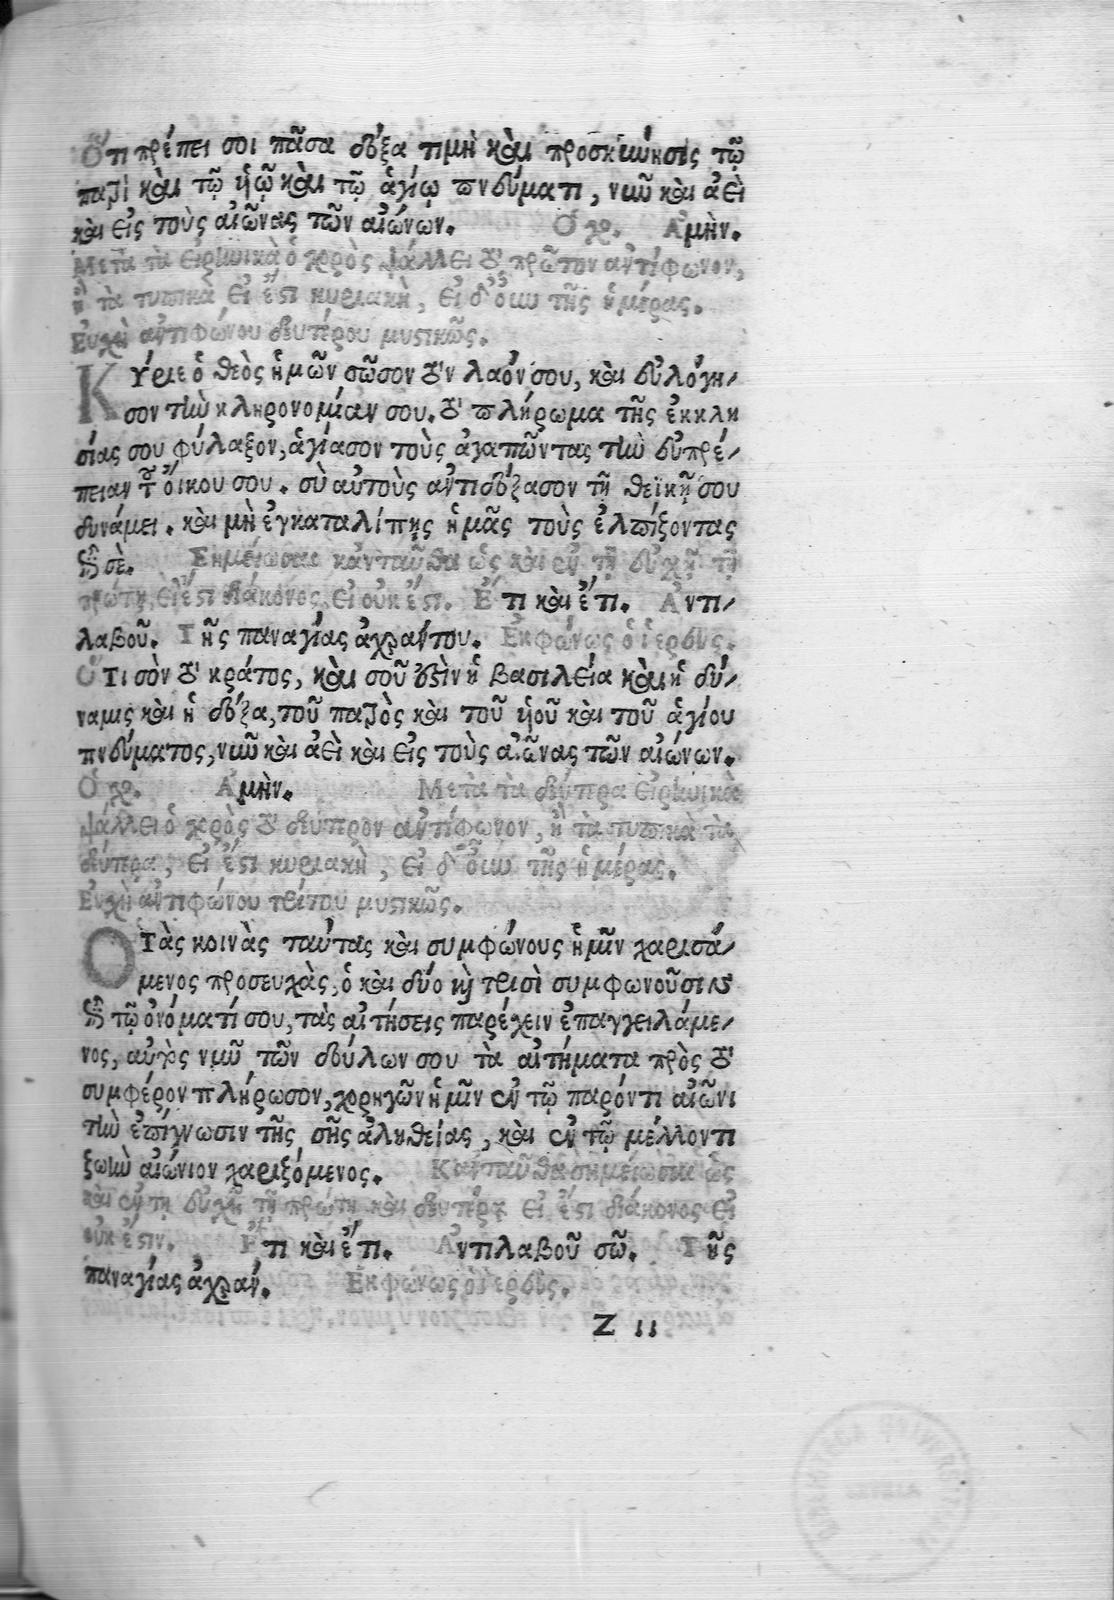 Ὅτι πρέπει σοι πᾶσα δόξα τιμὴ καὶ προσκύνησις τῷ
πατρὶ καὶ τῷ ὑιῷ καὶ τῷ ἁγίῳ πνεύματι, νῦν καὶ ἀεὶ
καὶ εἰς τοὺς αἰῶνας τῶν αἰώνων. Ὁ χο. Ἀμὴν.
Μετὰ τὰ εἰρηνικὰ ὁ χορὸς ψάλλει τὸ πρῶτον ἀντίφωνον,
ἢ τὰ τυπικὰ εἰ ἔστι κυριακὴ, εἰ δ' οὖν τῆς ἡμέρας.
Ευχὴ ἀντιφώνου δευτέρου μυστικῶς.
Κύριε ὁ θεὸς ἡμῶν σῶσον τὸν λαόν σου, καὶ εὐλόγη-
σον τὴν κληρονομίαν σου. τὸ πλήρωμα τῆς ἐκκλη
σίας σου φύλαξον, ἁγίασον τοὺς ἀγαπῶντας τὴν εὐπρέ-
πειαν τοῦ οἴκου σου. σὺ αὐτοὺς ἀντιδόξασον τῇ θεϊκῇ σου
δυνάμει. καὶ μὴ ἐγκαταλίπῃς ἡμᾶς τοὺς ἐλπίζοντας
ἐπὶ σὲ. Σημείωσαι κἀνταῦθα ὡς καὶ ἐν τῇ εὐχῇ τῇ
πρώτῃ, εἰ ἔστι διάκονος, εἰ οὐκ ἔστι. Ἔτι καὶ ἔτι. Ἀντι-
λαβοῦ. Τῆς παναγίας ἀχράντου. Ἐκφώνως ὁ ἱερεὺς.
Ὅτι σὸν τὸ κράτος, καὶ σοῦ ἐστὶν ἡ βασιλεία καὶ ἡ δύ-
ναμις καὶ ἡ δόξα, τοῦ πατρὸς καὶ τοῦ ὑιοῦ καὶ τοῦ ἁγίου
πνεύματος, νῦν καὶ ἀεὶ καὶ εἰς τοὺς αἰῶνας τῶν αἰώνων.
Ὁ χο. Ἀμὴν. Μετὰ τὰ δεύτερα εἰρηνικὰ
ψάλλει ὁ χορὸς τὸ δεύτερον ἀντίφωνον, ἢ τὰ τυπικὰ τὰ
δεύτερα, εἰ ἔστι κυριακὴ, εἰ δ' οὖν τῆς ἡμέρας.
Ευχὴ ἀντιφώνου τρίτου μυστικῶς.
Ὁ τὰς κοινὰς ταύτας καὶ συμφώνους ἡμῖν χαρισά-
μενος προσευχὰς, ὁ καὶ δύο καὶ τρισὶ συμφωνοῦσιν
ἐπὶ τῷ ὀνόματί σου, τὰς αἰτήσεις παρέχειν ἐπαγγειλάμε-
νος, αὐτὸς νῦν τῶν δούλων σου τὰ αἰτήματα πρὸς τὸ
συμφέρον πλήρωσον, χορηγῶν ἡμῖν ἐν τῷ παρόντι αἰῶνι
τὴν ἐπίγνωσιν τῆς σῆς ἀληθείας, καὶ ἐν τῷ μέλλοντι
ζωὴν αἰώνιον χαριζόμενος. Κἀνταῦθα σημείωσαι ὡς
καὶ ἐν τῇ εὐχῇ τῇ πρώτῃ καὶ δευτέρᾳ εἰ ἔστι διάκονος εἰ
οὐκ ἔστιν. Ἔτι καὶ ἔτι. Ἀντιλαβοῦ σῶ. Τῆς
παναγίας ἀχράν. Ἐκφώνως ὁ ἱερεὺς.
Z ιι